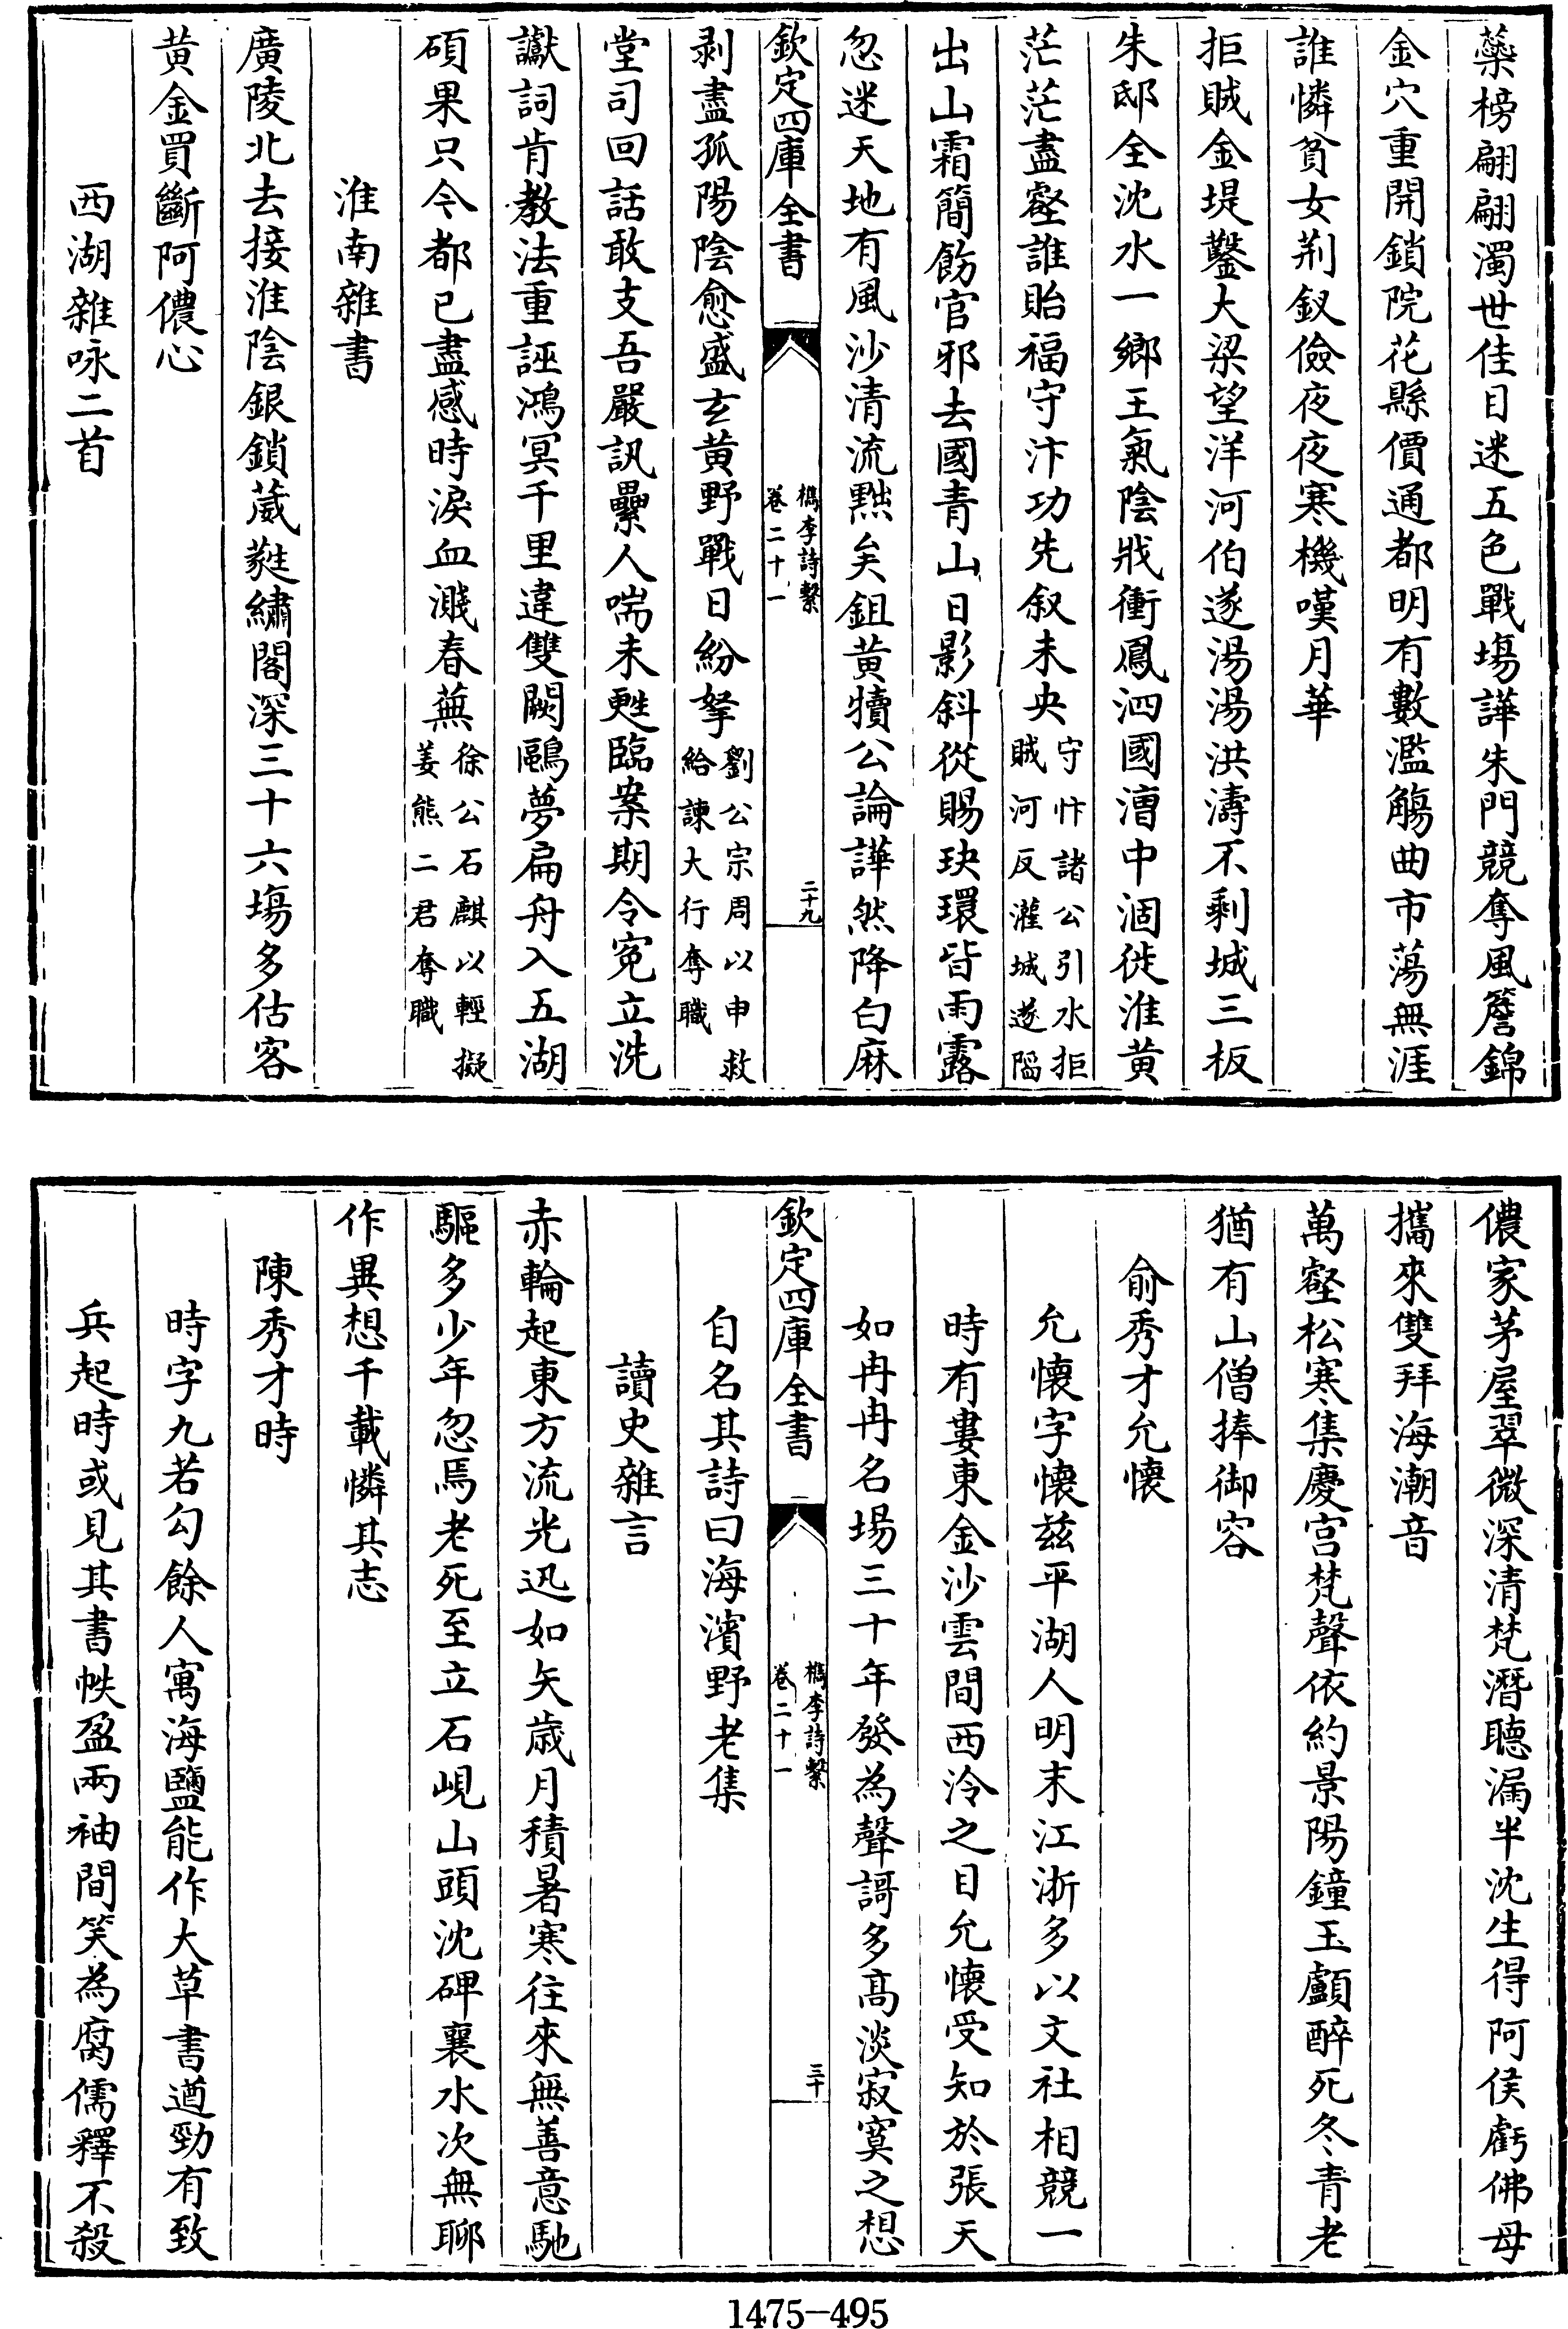 藥榜翩翩濁世佳目迷五色戰塲譁朱門競奪風簷錦
金穴重開鎖院花縣價通都明有數濫觴曲市蕩無涯
誰憐貧女荆釵儉夜夜寒機嘆月華
拒賊金堤鑿大梁望洋河伯遂湯湯洪濤不剩城三板
朱邸全沈水一鄉王氣陰戕衝鳳泗國漕中涸徙淮黄
茫茫盡壑誰貽福守汴功先叙未央守忭諸公引水拒賊河反灌城遂陷
出山霜簡飭官邪去國青山日影斜從賜玦環皆雨露
忽迷天地有風沙清流黜矣鉏黄犢公論譁然降白麻
欽定四庫全書
檇李詩繫
卷二十一
二十九
剥盡孤陽陰愈盛玄黄野戰日紛拏劉公宗周以申救給諫大行奪職
堂司回話敢支吾嚴訊纍人喘未甦臨案期令寃立洗
讞詞肯教法重誣鴻冥千里違雙闕鷗夢扁舟入五湖
碩果只今都已盡感時淚血濺春蕪徐公石麒以輕擬姜熊二君奪職
淮南雜書
廣陵北去接淮陰銀鎖葳蕤繡閣深三十六塲多估客
黄金買斷阿儂心
西湖雜咏二首
儂家茅屋翠微深清梵潛聴漏半沈生得阿侯虧佛母
攜來雙拜海潮音
萬壑松寒集慶宫梵聲依約景陽鐘玉顱醉死冬青老
猶有山僧捧御容
俞秀才允懷
允懷字懷兹平湖人明末江浙多以文社相競一
時有婁東金沙雲間西泠之目允懷受知於張天
如冉冉名場三十年發為聲謌多髙淡寂寞之想
欽定四庫全書
檇李詩繫
卷二十一
三十
自名其詩曰海濱野老集
讀史雜言
赤輪起東方流光迅如矢歳月積暑寒往來無善意馳
驅多少年忽焉老死至立石峴山頭沈碑襄水次無聊
作異想千載憐其志
陳秀才時
時字九若勾餘人寓海鹽能作大草書遒勁有致
兵起時或見其書帙盈兩袖間笑為腐儒釋不殺
1475-495